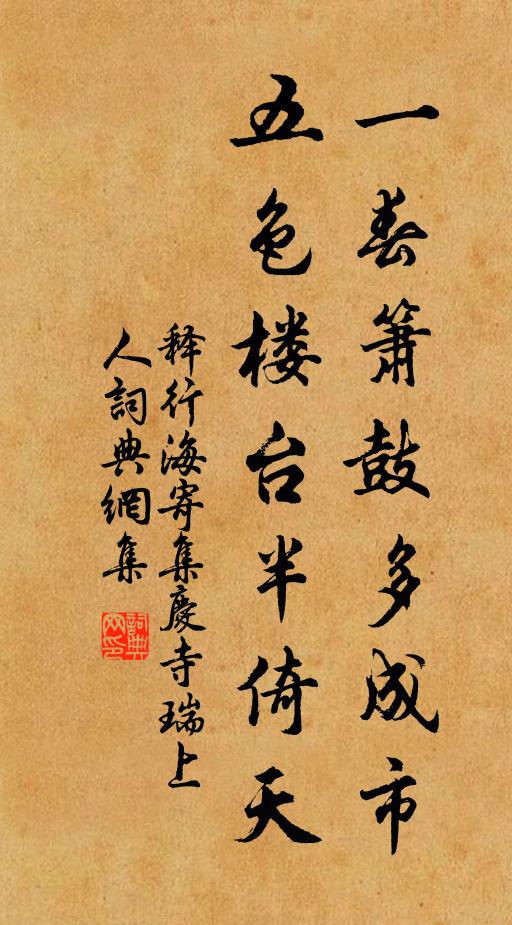 一春箫鼓多成市
五色楼台半倚天
释行海寄集慶寺瑞上
人詞典網集
詞典
网印